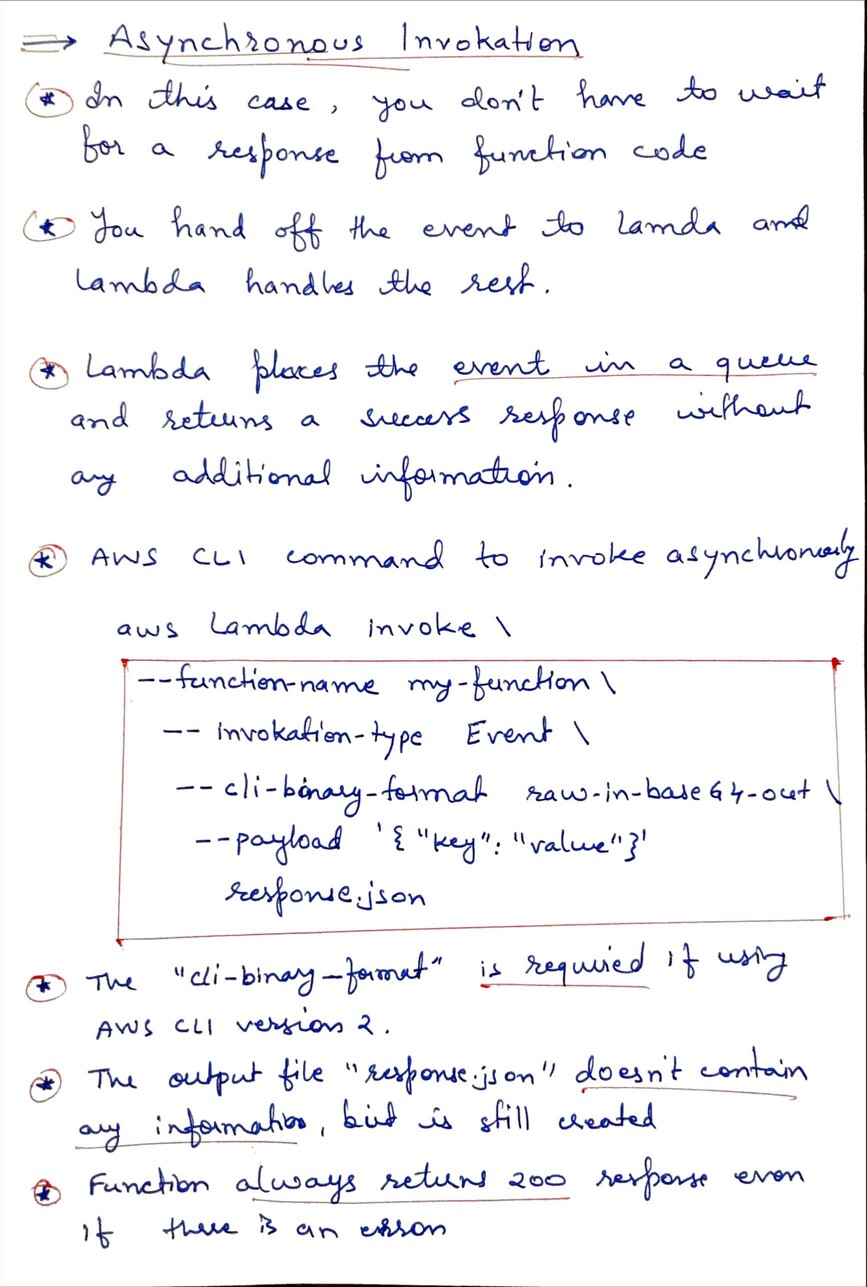 ⇒ Asynchronous Invokation
* In this case, you don't have to wait
for a response from function code
* You hand off the event to Lamda and
Lambda handles the rest.
* Lambda places the event in a queue
and returns a success response without
any additional information.
* AWS CLI command to invoke asynchronously
aws Lambda invoke \
--function-name my-function \
-- invokation-type Event \
-- cli-binary-format raw-in-base64-out \
--payload '{ "key": "value"}'
response.json
* The "cli-binary-format" is required if using
AWS CLI version 2.
* The output file "response.json" doesn't contain
any information, but is still created
* Function always returns 200 response even
if there is an error